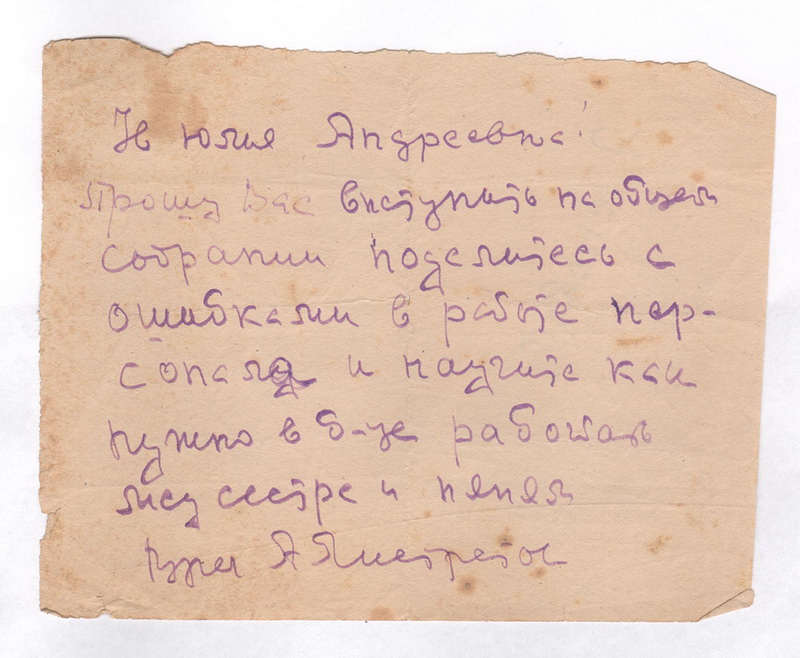 Ув Юлия Андреевна!
Прошу Вас выступить на общем
собрании поделитесь с
ошибками в работе пер-
сонала и научите как
нужно в б-це работать
мед сестре и няням
Врач А